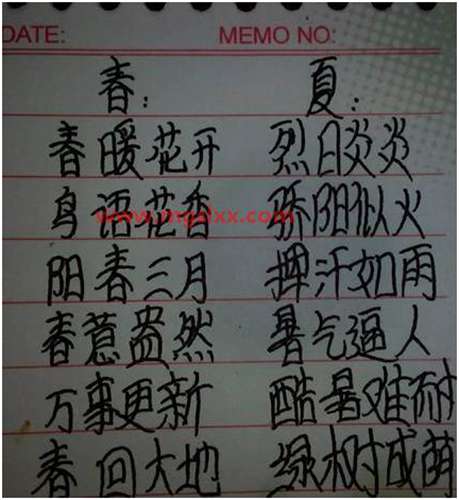 DATE: MEMO NO:
春: 夏:
春暖花开 烈日炎炎
鸟语花香 骄阳似火
www.mgslxx.com
阳春三月 挥汗如雨
春意盎然 暑气逼人
万事更新 酷暑难耐
春回大地 绿树成荫